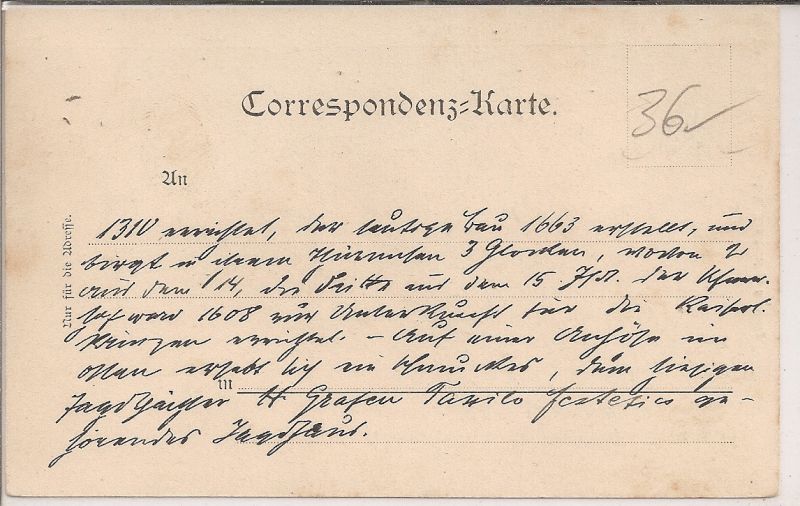 Correspondenz-Karte.
36
An
Nur für die Adresse.
1310 errichtet, der heutige Bau 1663 erstellt, und
birgt in ihrem Thürmchen 3 Glocken, wovon 2
aus dem 14, die dritte aus dem 15 Jhdt. der
hof ward 1608 zur Unterkunft für die Kaiserl.
Prinzen errichtet. – Auf einer Anhöhe im
Osten erhebt sich ein schmuckes, dem hiesigen
in
Jagdpächter H Grafen Tassilo Festetics ge-
hörendes Jagdhaus.